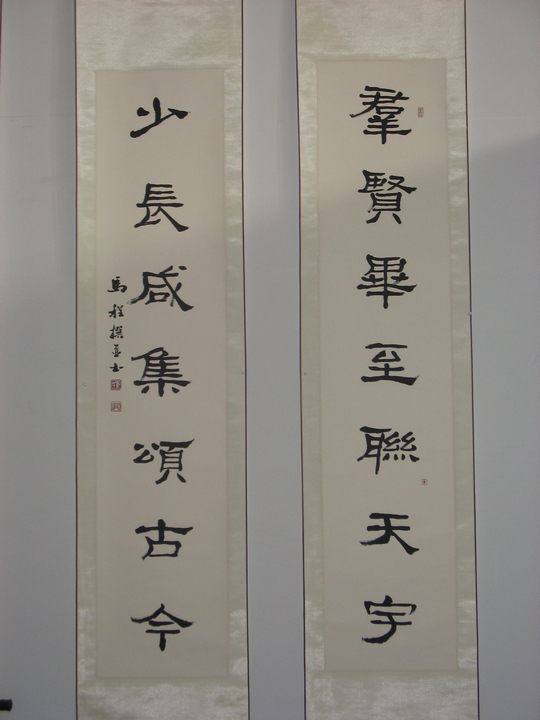 羣賢畢至聯天宇
少長咸集頌古今
馬程撰並书